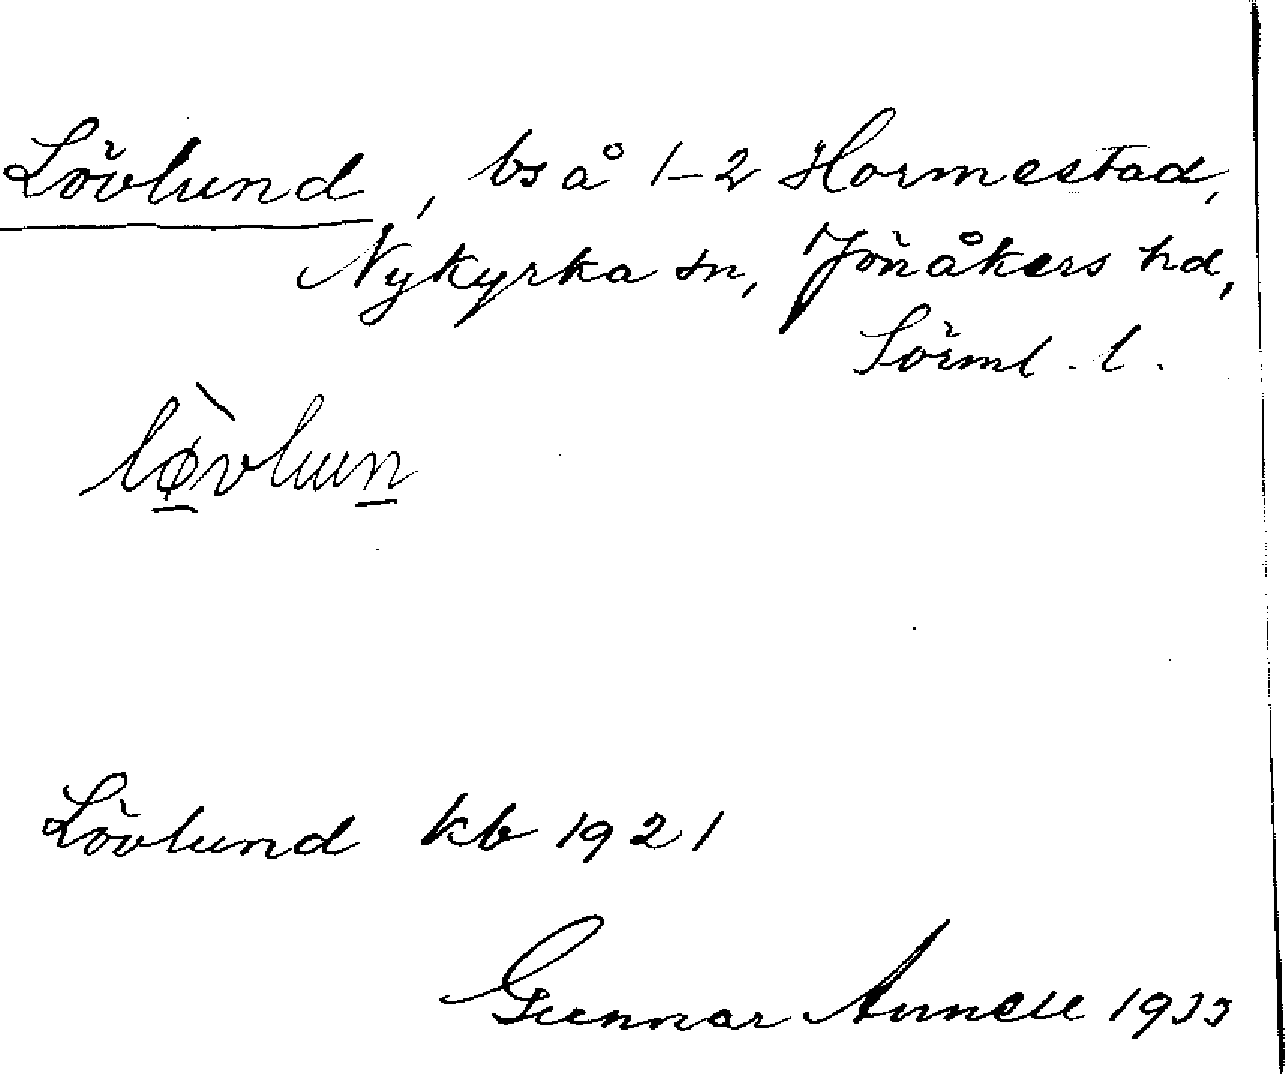 Lövlund, bs å 1-2 Hormestad,
Nykyrka sn, Jönåkers hd,
Sörml. l.
lø̱̀vluṉ
Lövlund kb 1921
Gunnar 1933